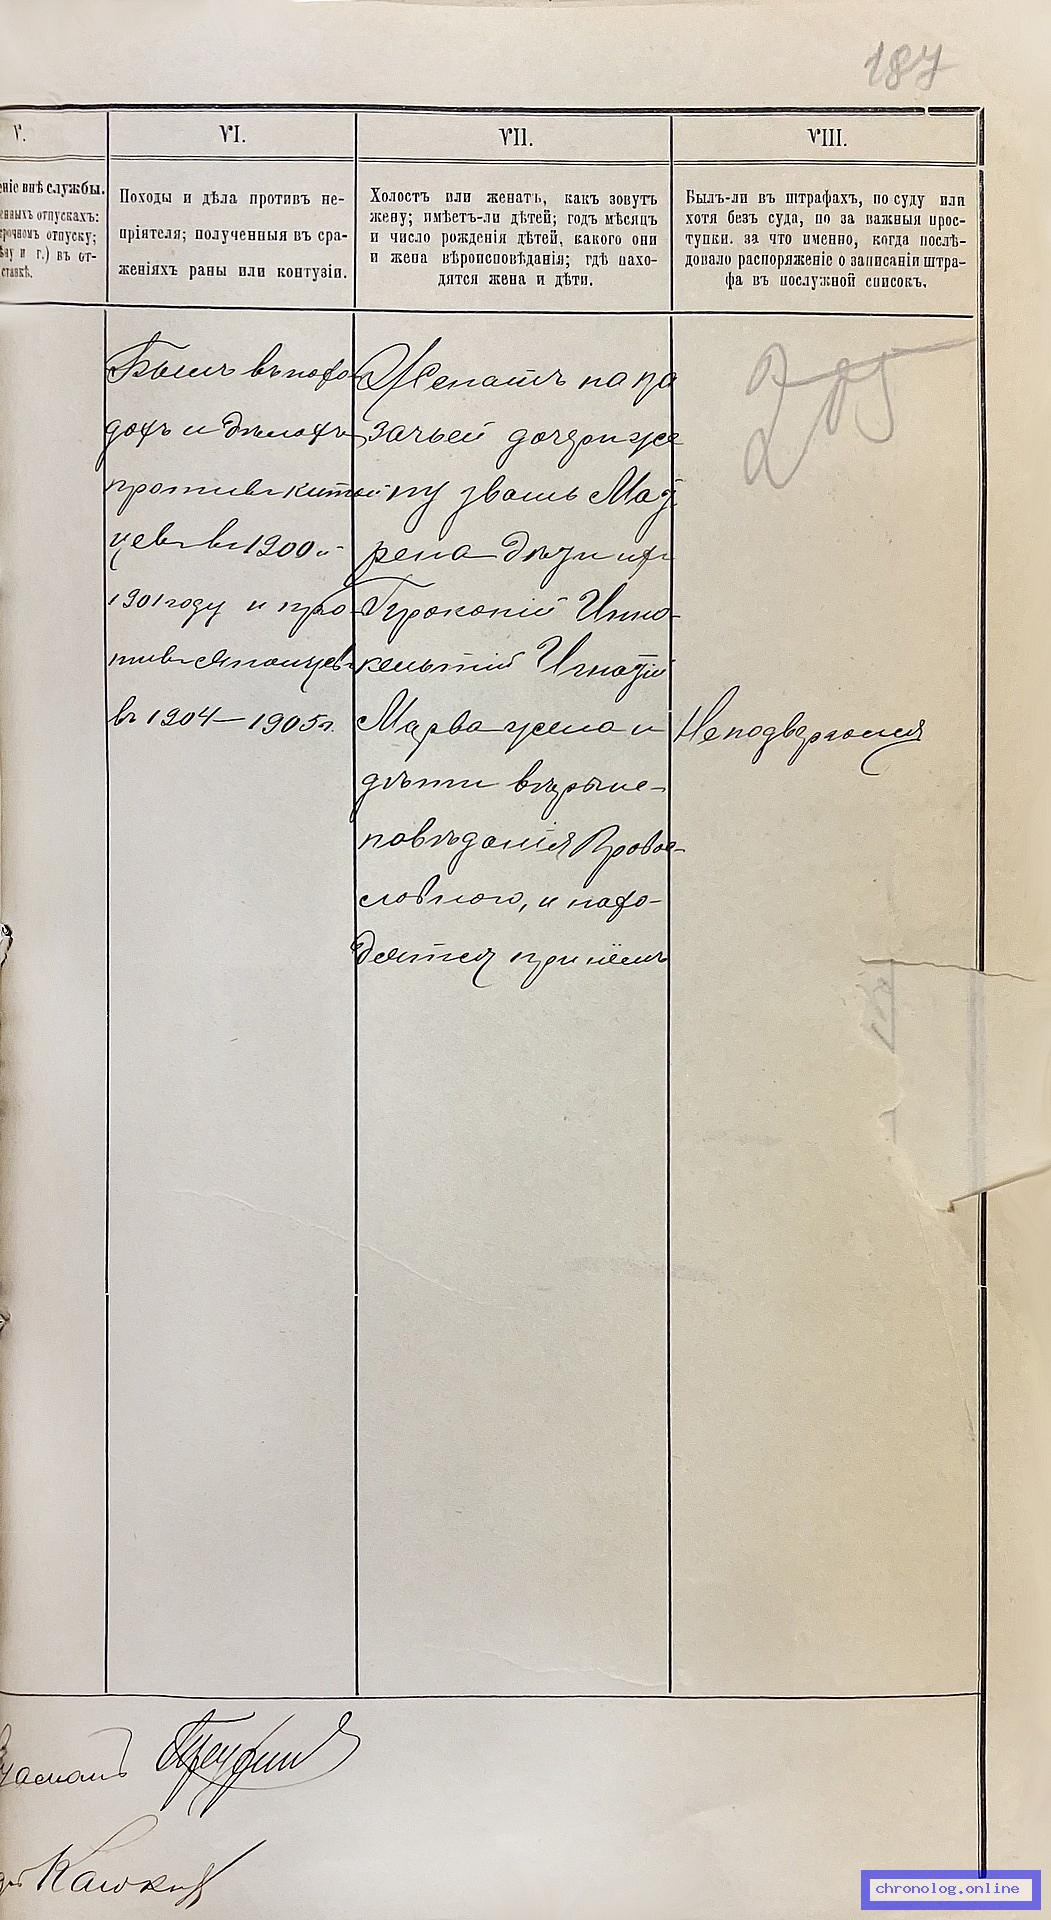 187
V.
VI.
VII.
VIII.
еніе внѣ службы.
енныхъ отпускахъ:
срочномъ отпуску;
ѣну и г.) въ от-
ставкѣ.
Походы и дѣла противъ не-
пріятеля; полученныя въ сра-
женіяхъ раны или контузіи.
Холостъ или женатъ, какъ зовутъ
жену; имѣетъ-ли дѣтей; годъ мѣсяцъ
и число рожденія дѣтей, какого они
и жена вѣроисповѣданія; гдѣ нахо-
дятся жена и дѣти.
Былъ-ли въ штрафахъ, по суду или
хотя безъ суда, но за важные прос-
тупки. за что именно, когда послѣ-
довало распоряженіе о записаніи штра-
фа въ послужной списокъ.
Былъ въ похо-
дахъ и дѣлахъ
противъ китай
цевъ въ 1900 и
1901 году и про-
тивъ Японцевъ
въ 1904–1905 г.
Женатъ на ка
зачьей дочери же
ну звать Мат
рена дѣти ихъ
Прокопій Инно-
кентій Игнатій
Марва жена и
дѣти вѣроис-
повѣданія Право-
славнаго, и нахо-
дятся при нёмъ
Неподвергался
Кашкин
chronolog.online